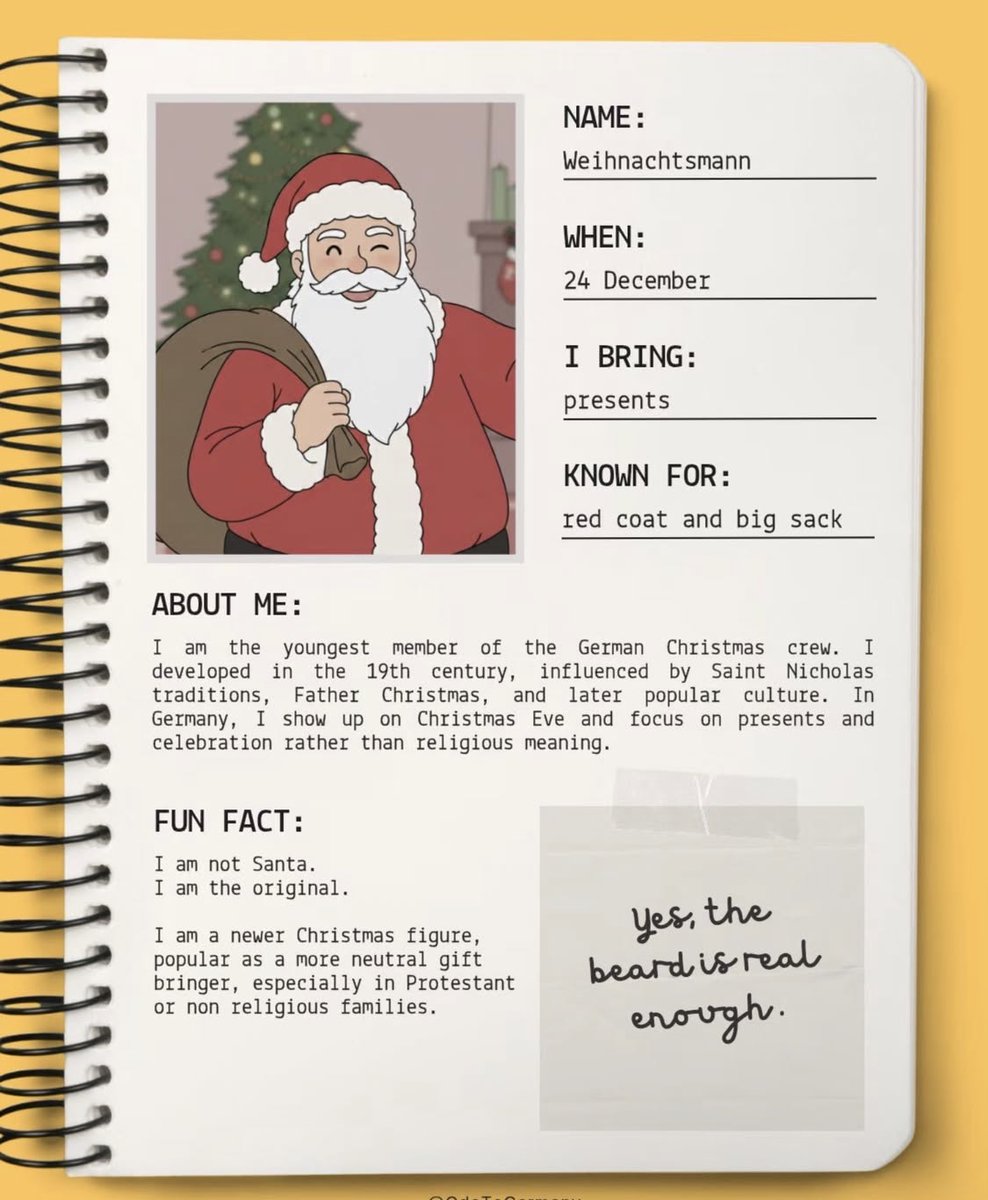 NAME:
Weihnachtsmann
WHEN:
24 December
I BRING:
presents
KNOWN FOR:
red coat and big sack
ABOUT ME:
I am the youngest member of the German Christmas crew. I
developed in the 19th century, influenced by Saint Nicholas
traditions, Father Christmas, and later popular culture. In
Germany, I show up on Christmas Eve and focus on presents and
celebration rather than religious meaning.
FUN FACT:
I am not Santa.
I am the original.
I am a newer Christmas figure,
popular as a more neutral gift
bringer, especially in Protestant
or non religious families.
Yes, the
beard is real
enough.